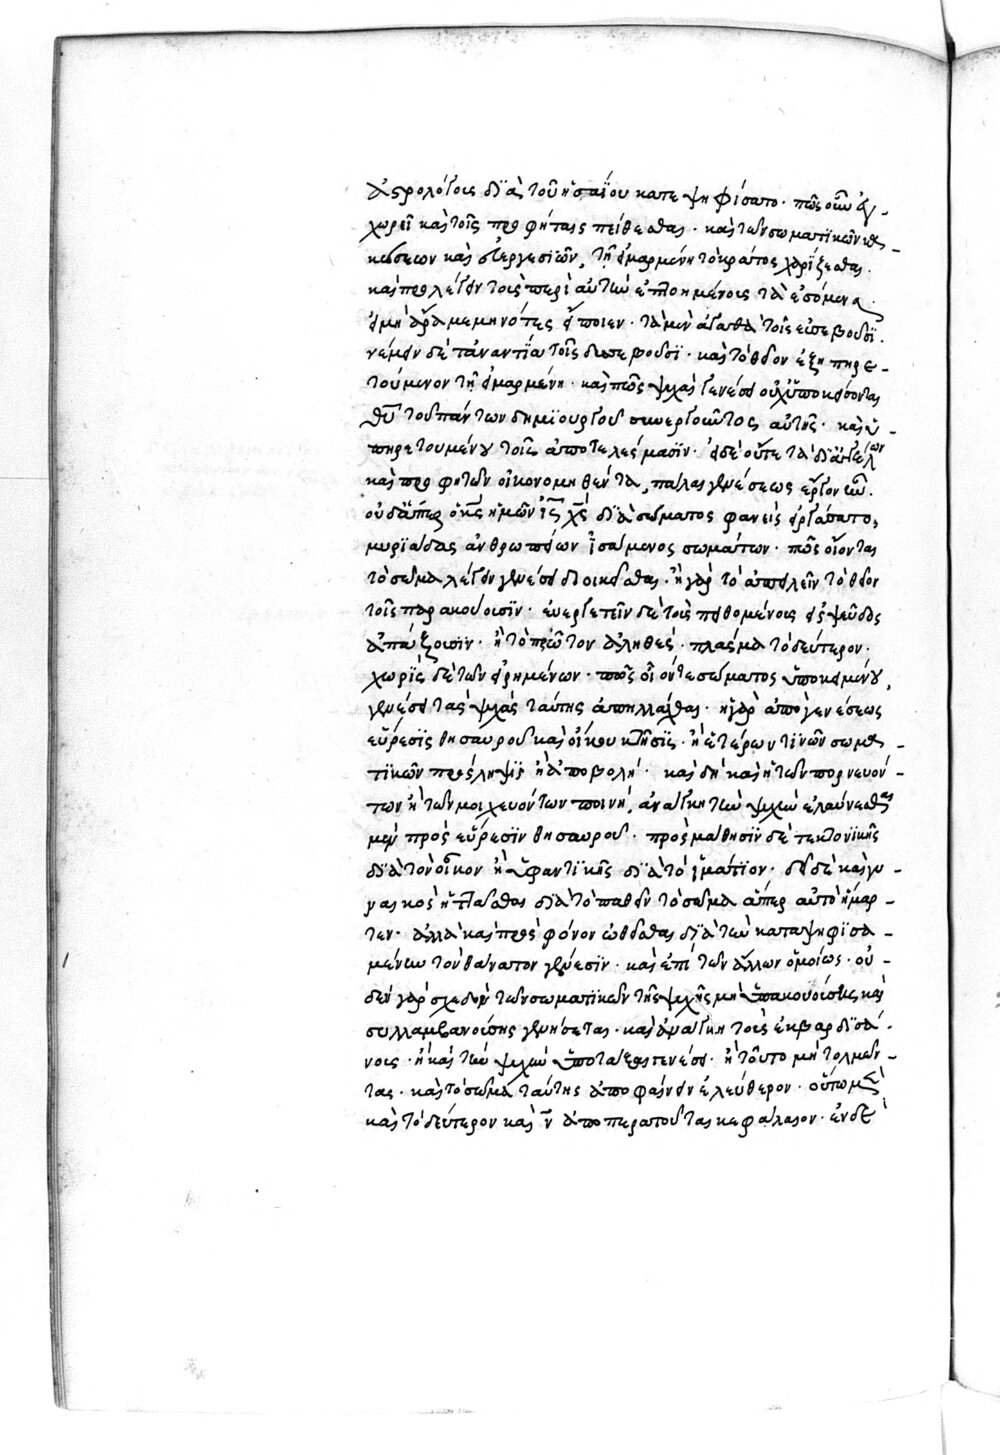 ἀστρολόγοις διὰ τοῦ ἡσαΐου κατεψηφίσατο· πῶς οὖν ἐγ-
χωρεῖ καὶ τοῖς προφήταις πείθεσθαι· καὶ τῶν σωματικῶν
κακώσεων καὶ εὐεργεσιῶν, τῇ εἱμαρμένῃ τὸ κράτος χαρίζεσθαι.
καὶ προλέγειν τοῖς περὶ αὐτῶν ἐπτοημένοις τὰ ἐσόμενα·
εἰ μὴ ἄρα μεμηνότες εἴποιεν· τὰ μὲν ἀγαθὰ τοῖς εὐσεβοῦσι.
νέμειν δὲ τἀναντία τοῖς δυσσεβοῦσι· καὶ τὸ θεῖον ἐξυπηρε-
τούμενον τῇ εἱμαρμένῃ· καὶ πῶς ψυχὰς γενέσει οὐχ ὑποκείσονται
θεοῦ τοῦ πάντων δημιουργοῦ συνεργοῦντος αὐτῆς· καὶ ὑ-
πηρετουμένου τοῖς ἀποτελέσμασιν· εἰ δὲ οὔτε τὰ δι' ἀγγέλων
καὶ προφητῶν οἰκονομηθέντα, παλαιᾶς γενέσεως ἔργον ἦν.
οὐδ' ἅπερ ὁ κς ἡμῶν ις χς διὰ σώματος φανεὶς εἰργάσατο,
μυριάδας ἀνθρωπείων ἰσάμενος σωμάτων· πῶς οἴονται
τὸ σῶμα λέγειν γενέσει διοικεῖσθαι· ἢ γὰρ τὸ ἀπειλεῖν τὸ θεῖον
τοῖς παρακούουσιν· εὐεργετεῖν δὲ τοῖς πειθομένοις εἰς ψεῦδος
ἀπάξουσιν· ἢ τὸ πρῶτον ἀληθές· πλάσμα τὸ δεύτερον·
χωρὶς δὲ τῶν εἰρημένων· πῶς οἷόν τε σώματος ὑποκειμένου,
γενέσει τὰς ψυχὰς ταύτης ἀπηλλάχθαι· ἢ γὰρ ἀπὸ γενέσεως
εὕρεσις θησαυροῦ καὶ οἴκου κτῆσις· ἢ ἑτέρων τινῶν σωμα-
τικῶν πρόσληψις ἢ ἀποβολή· καὶ δὴ καὶ ἡ τῶν πορνευόν-
των ἢ τῶν μοιχευόντων ποινή, ἀνάγκη τὴν ψυχὴν ἐλαύνεσθαι
μὲν πρὸς εὕρεσιν θησαυροῦ· πρὸς μάθησιν δὲ τεκτονικῆς
διὰ τὸν οἶκον ἢ ὑφαντικῆς διὰ τὸ ἱμάτιον· δεῖ δὲ καὶ γυ-
ναικὸς ἡττᾶσθαι διὰ τὸ παθεῖν τὸ σῶμα ἅπερ αὐτὸ ἥμαρ-
τεν· ἀλλὰ καὶ πρὸς φόνον ὠθεῖσθαι διὰ τὴν καταψηφισα-
μένην τὸν θάνατον γένεσιν· καὶ ἐπὶ τῶν ἄλλων ὁμοίως· οὐ-
δὲν γὰρ σχεδὸν τῶν σωματικῶν τῆς ψυχῆς μὴ ὑπακουούσης καὶ
συλλαμβανούσης γενήσεται· καὶ ἀνάγκη τοῖς ἐκ βαρδισά-
νους· ἢ καὶ τὴν ψυχὴν ὑποτάξαι γενέσει· ἢ τοῦτο μὴ τολμῶν-
τας· καὶ τὸ σῶμα ταύτης ἀποφαίνειν ἐλεύθερον· οὕτω μὲν
καὶ τὸ δεύτερον καὶ ν ἀποπεραιοῦται κεφάλαιον· ἐν δὲ